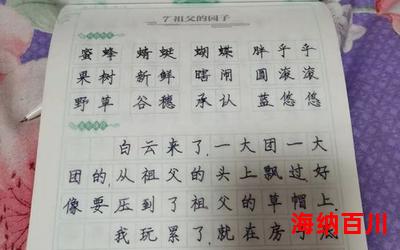 7 祖父的园子
蜜蜂 蜻蜓 蝴蝶 胖乎乎
果树 新鲜 瞎闹 圆滚滚
野草 谷穗 承认 蓝悠悠
白云来了,一大团一大
团的,从祖父的头上飘过,好
像要压到了祖父的草帽上。
我玩累了,就在房
海纳百川